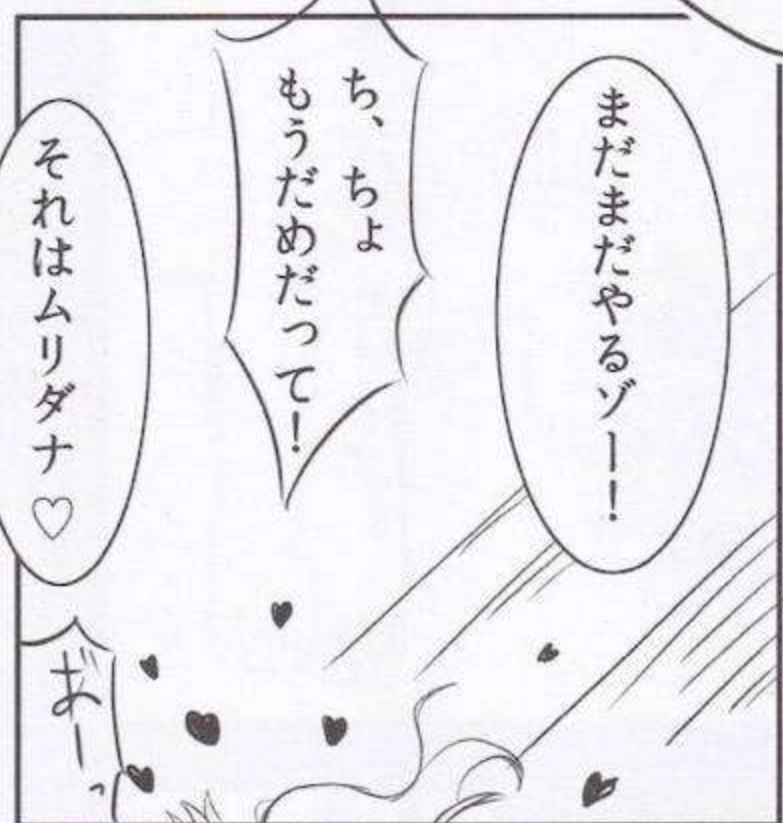 まだまだやるゾー！
ち、ちょ
もうだめだって！
それはムリダナ♡
あ゛ーっ